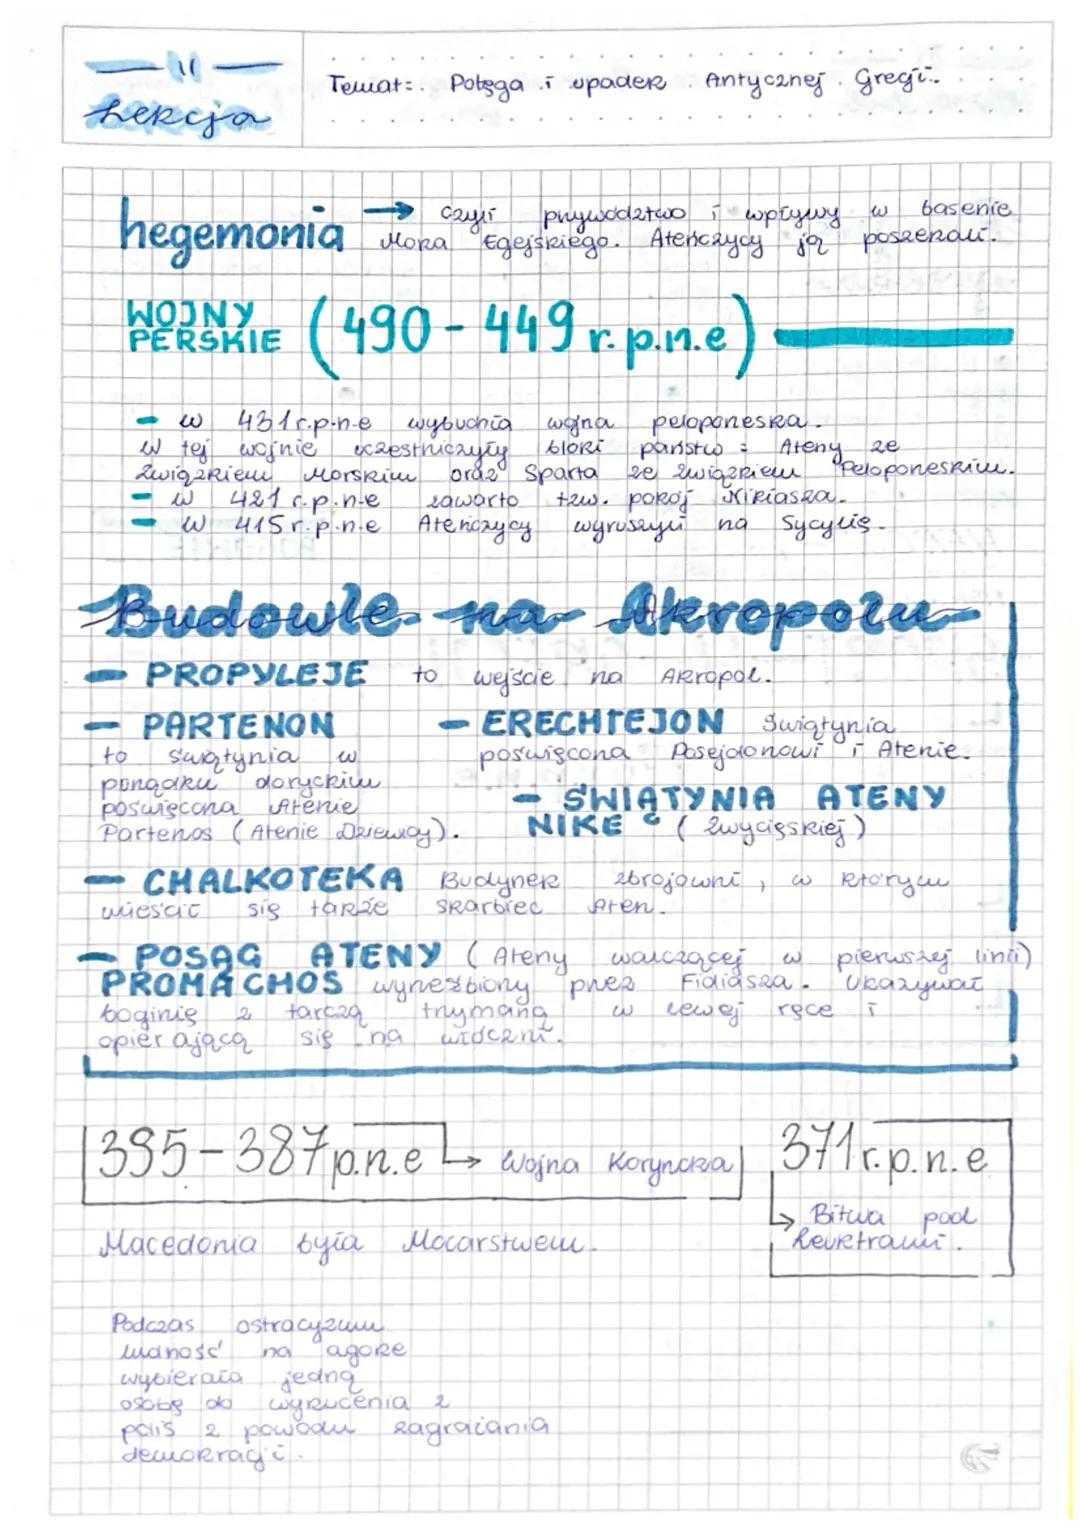 11
Lekcja
Temat: Potęga i upadek Antycznej Grecji.
hegemonia → czyli przywództwo i wpływy w basenie
Morza Egejskiego. Ateńczycy ją poszerzali.
WOJNY
PERSKIE (490-449 r.p.n.e)
- w 431 r.p.n.e wybuchła wojna peloponeska.
W tej wojnie uczestniczyły bloki państw: Ateny ze
Związkiem Morskim oraz Sparta ze Związkiem Peloponeskim.
- w 421 r.p.n.e zawarto tzw. pokój Nikiasza.
- w 415 r.p.n.e Ateńczycy wyruszyli na Sycylię.
Budowle na Akropolu
- PROPYLEJE to wejście na Akropol.
- PARTENON
to świątynia w
porządku doryckim
poświęcona Atenie
Partenos (Atenie Dziewicy).
- ERECHTEJON Świątynia
poświęcona Posejdonowi i Atenie.
- ŚWIĄTYNIA ATENY
NIKE (Zwycięskiej)
- CHALKOTEKA Budynek zbrojowni, w którym
mieścił się także skarbiec Aten.
- POSĄG ATENY (Ateny walczącej w pierwszej linii)
PROMACHOS wyrzeźbiony przez Fidiasza. Ukazywał
boginię z tarczą trzymaną w lewej ręce i
opierającą się na włóczni.
395-387 p.n.e → Wojna Koryncka
371 r.p.n.e
→ Bitwa pod
Leuktrami.
Macedonia była Mocarstwem.
Podczas ostracyzmu
ludność na agorze
wybierała jedną
osobę do wyrzucenia z
polis z powodu zagrażania
demokracji.